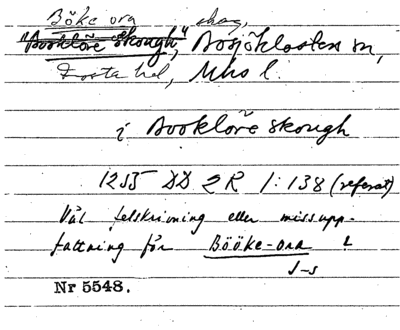 Böke ora skog,
"Booklöre Skough," Bosjöklosters sn,
Frosta hd, Mho l.
i Booklöre Skough
1255 DD 2R 1:138 (referat)
Väl felskrivning eller missupp-
fattning för Bööke-ora !
J-s
Nr 5548.